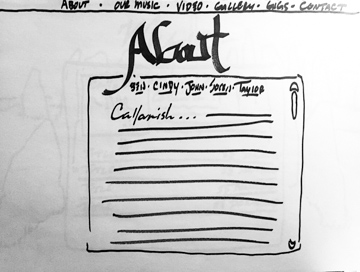 ABOUT · OUR MUSIC · VIDEO · GALLERY · GIGS · CONTACT
About
BEN · CINDY · JOHN · SORREN · TAYLOR
Callanish...